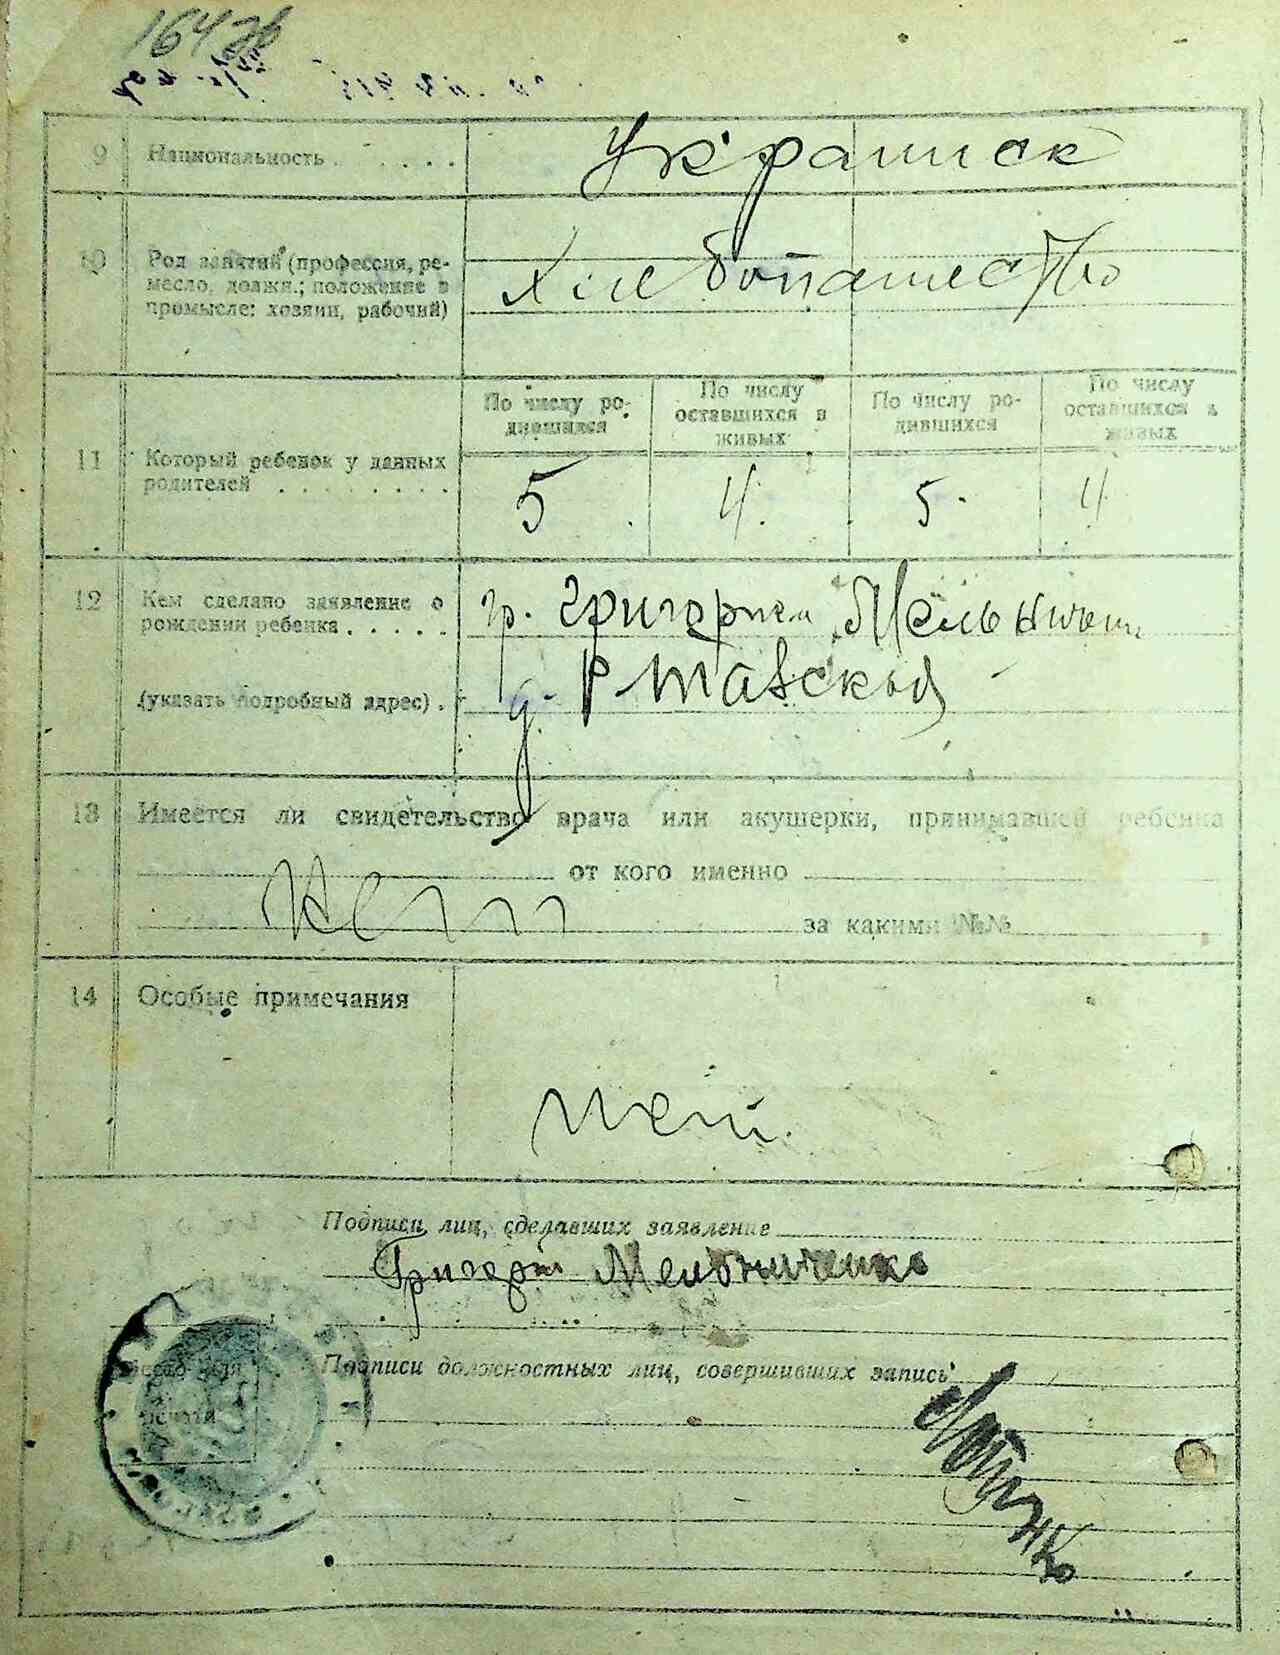 1647об
9 Национальность . . . . . . Украинск
10 Род занятий (профессия, ре-
месло, должн.; положение в
промысле: хозяин, рабочий)
Хлебопашество
По числу ро-
дившихся
По числу
оставшихся в
живых
По числу ро-
дившихся
По числу
оставшихся в
живых
11 Который ребенок у данных
родителей . . . . . . . .
5 4. 5. 4
12 Кем сделано заявление о
рождении ребенка . . . . .
гр. Григорием
(указать подробный адрес) .
д.
13 Имеется ли свидетельство врача или акушерки, принимавшей ребенка
от кого именно
нет за какими №№
14 Особые примечания
нет.
Подписи лиц, сделавших заявление
Григорий Мельниченко
Место для
печати
Подписи должностных лиц, совершивших запись